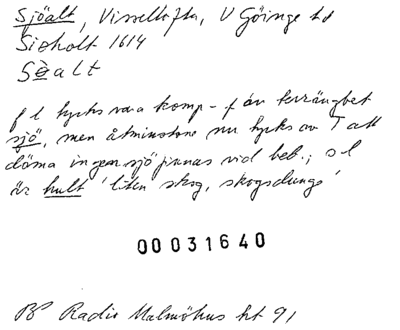 Sjöalt, Visseltofta, V Göinge hd
Sieholt 1614
Sèalt
f l tycks vara komp-f av terrängbet
sjö, men åtminstone nu tycks av T att
döma ingen sjö finnas vid beb.; s l
är hult 'liten skog, skogsdunge'
00031640
PP Radio Malmöhus ht 91